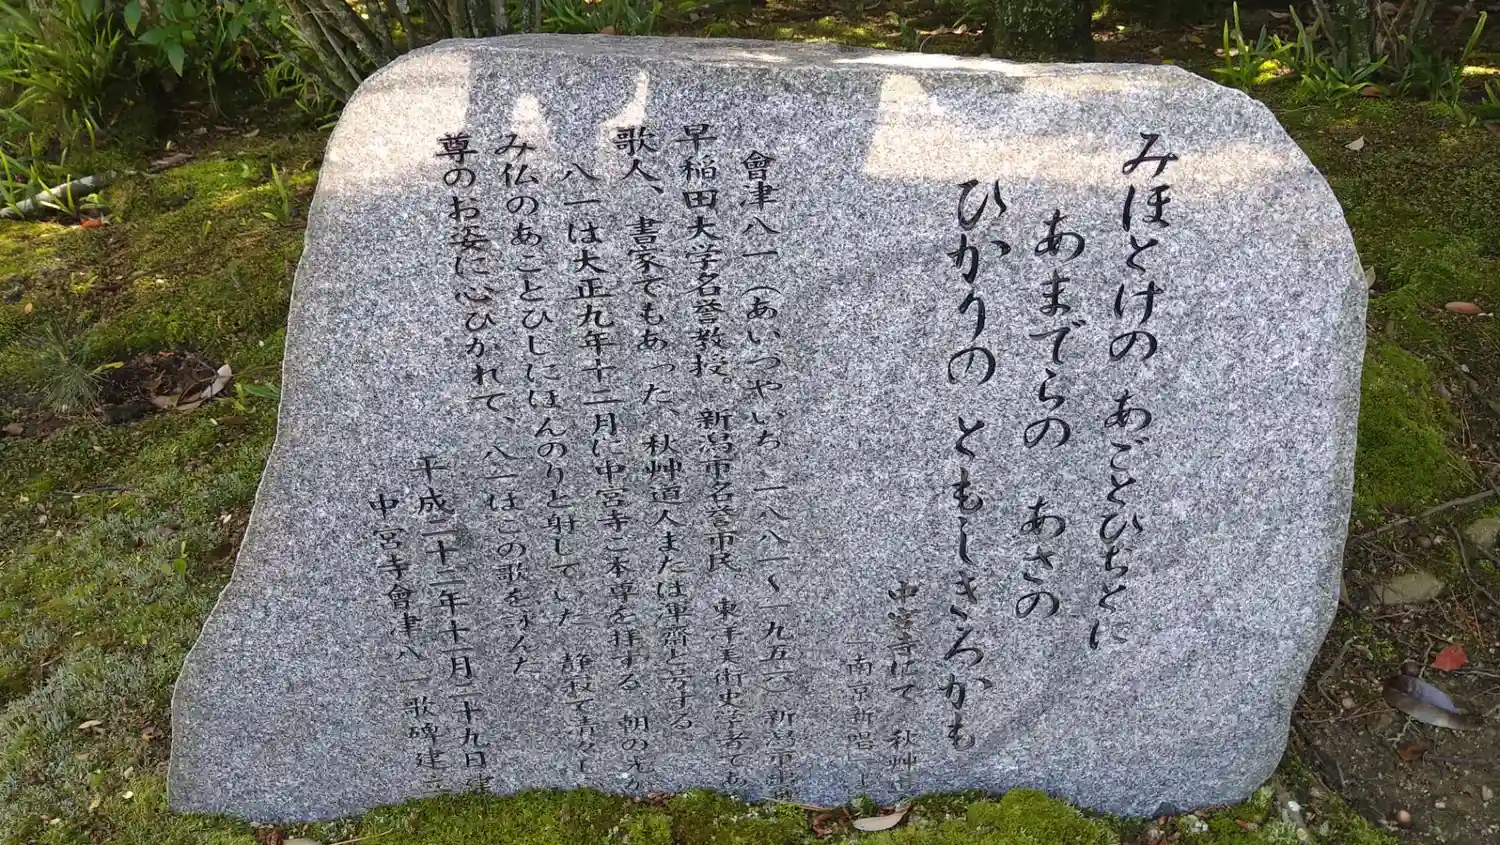 みほとけの あごとひぢとに
あまでらの あさの
ひかりの ともしきろかも
中宮寺にて 秋艸
「南京新唱」
會津八一（あいづやいち 一八八一～一九五六）新潟市
早稲田大学名誉教授。新潟市名誉市民、東洋美術史学者であ
歌人、書家でもあった、秋艸道人または渾齋と号する
八一は大正九年十二月に中宮寺ご本尊を拝する 朝の光が
み仏のあごとひじにほんのりと射していた。静寂で清々し
尊のお姿に心ひかれて、八一はこの歌を詠んだ
平成二十二年十一月二十九日建
中宮寺會津八一歌碑建立